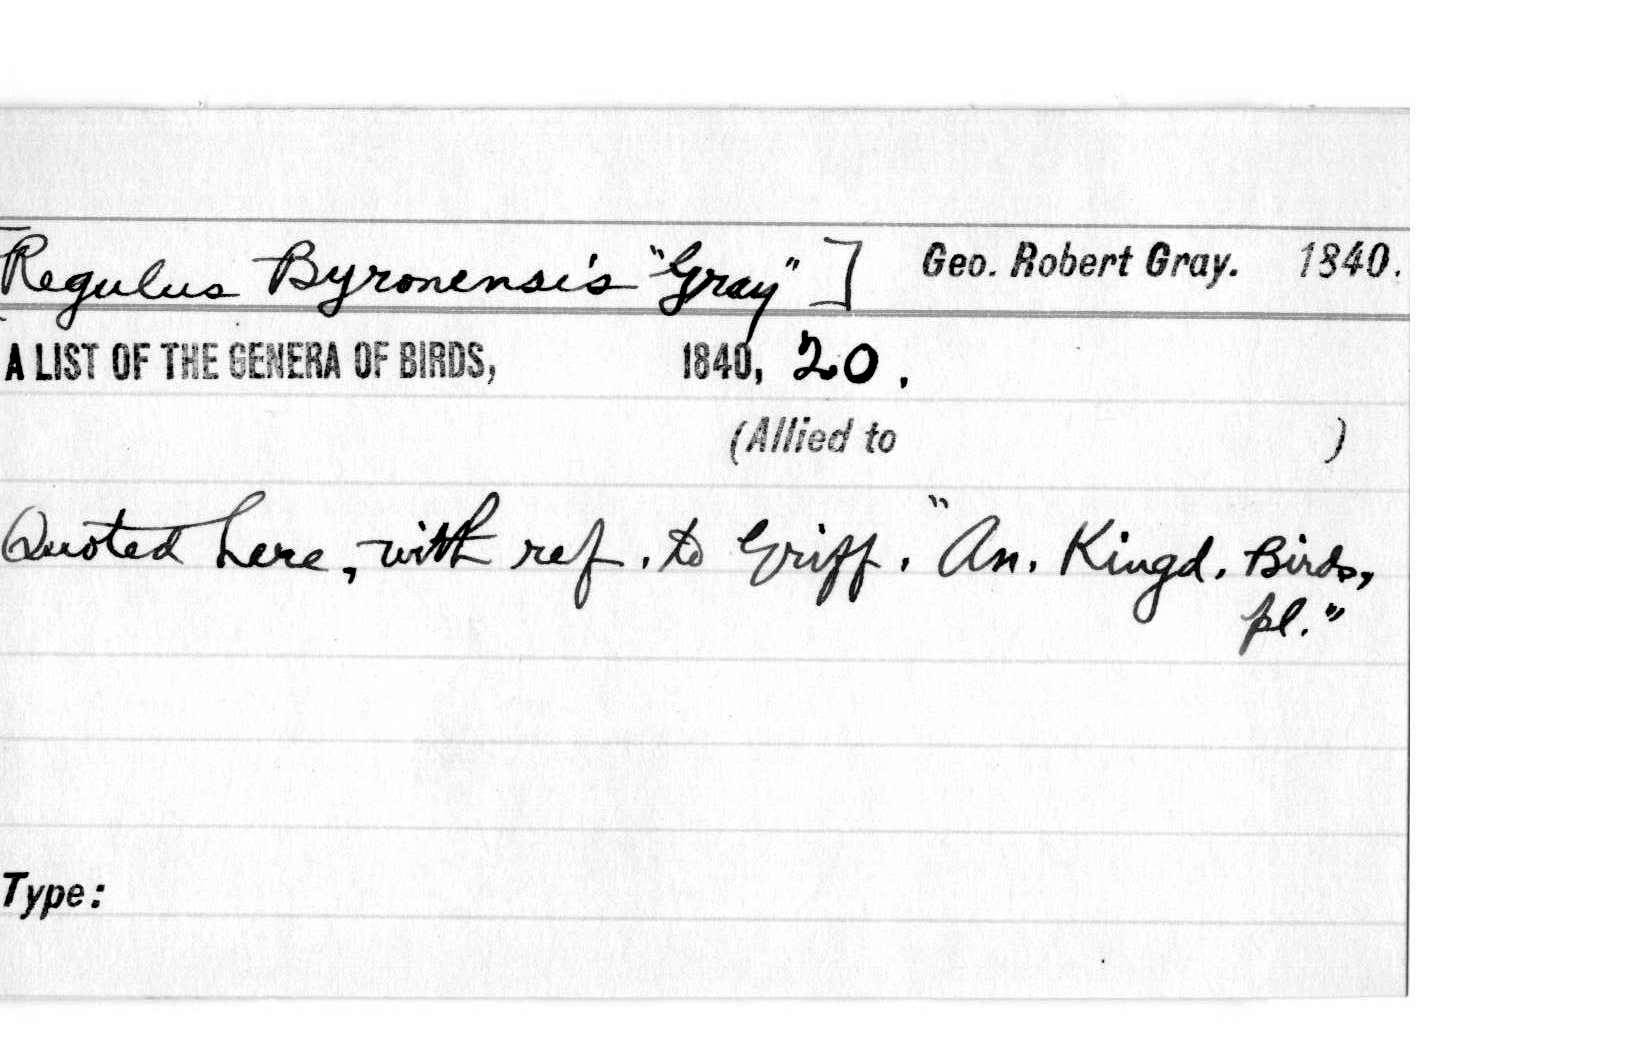 [Regulus Byronensis "Gray"] Geo. Robert Gray. 1840.
A LIST OF THE GENERA OF BIRDS, 1840, 20.
(Allied to )
Quoted here, with ref. to Griff. "An. Kingd. Birds,
pl."
Type: